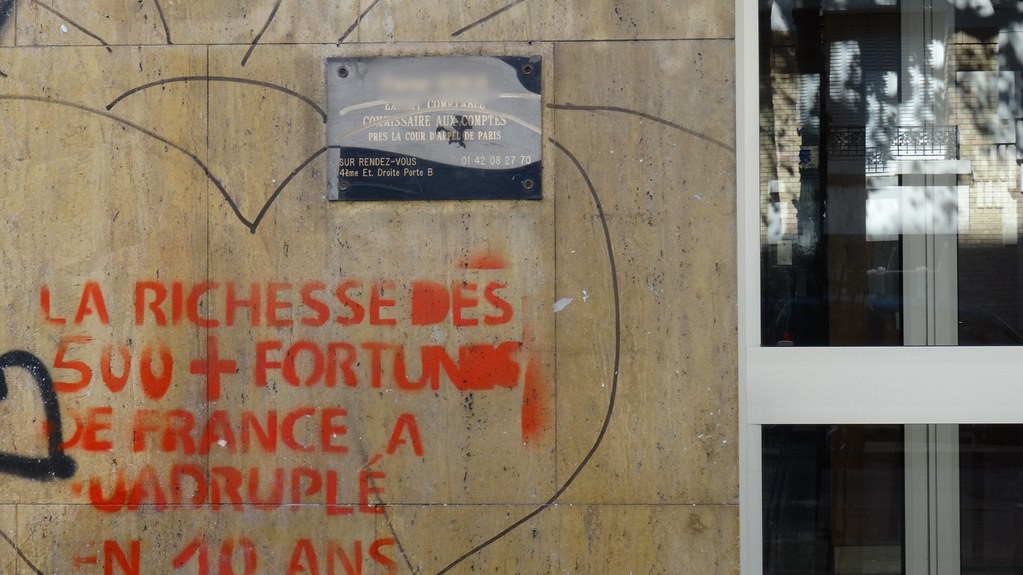 EXPERT COMPTABLE
COMMISSAIRE AUX COMPTES
PRES LA COUR D'APPEL DE PARIS
SUR RENDEZ-VOUS 01 42 08 27 70
4ème Et. Droite Porte B
LA RICHESSE DES
500 + FORTUNES
DE FRANCE A
QUADRUPLÉ
EN 10 ANS